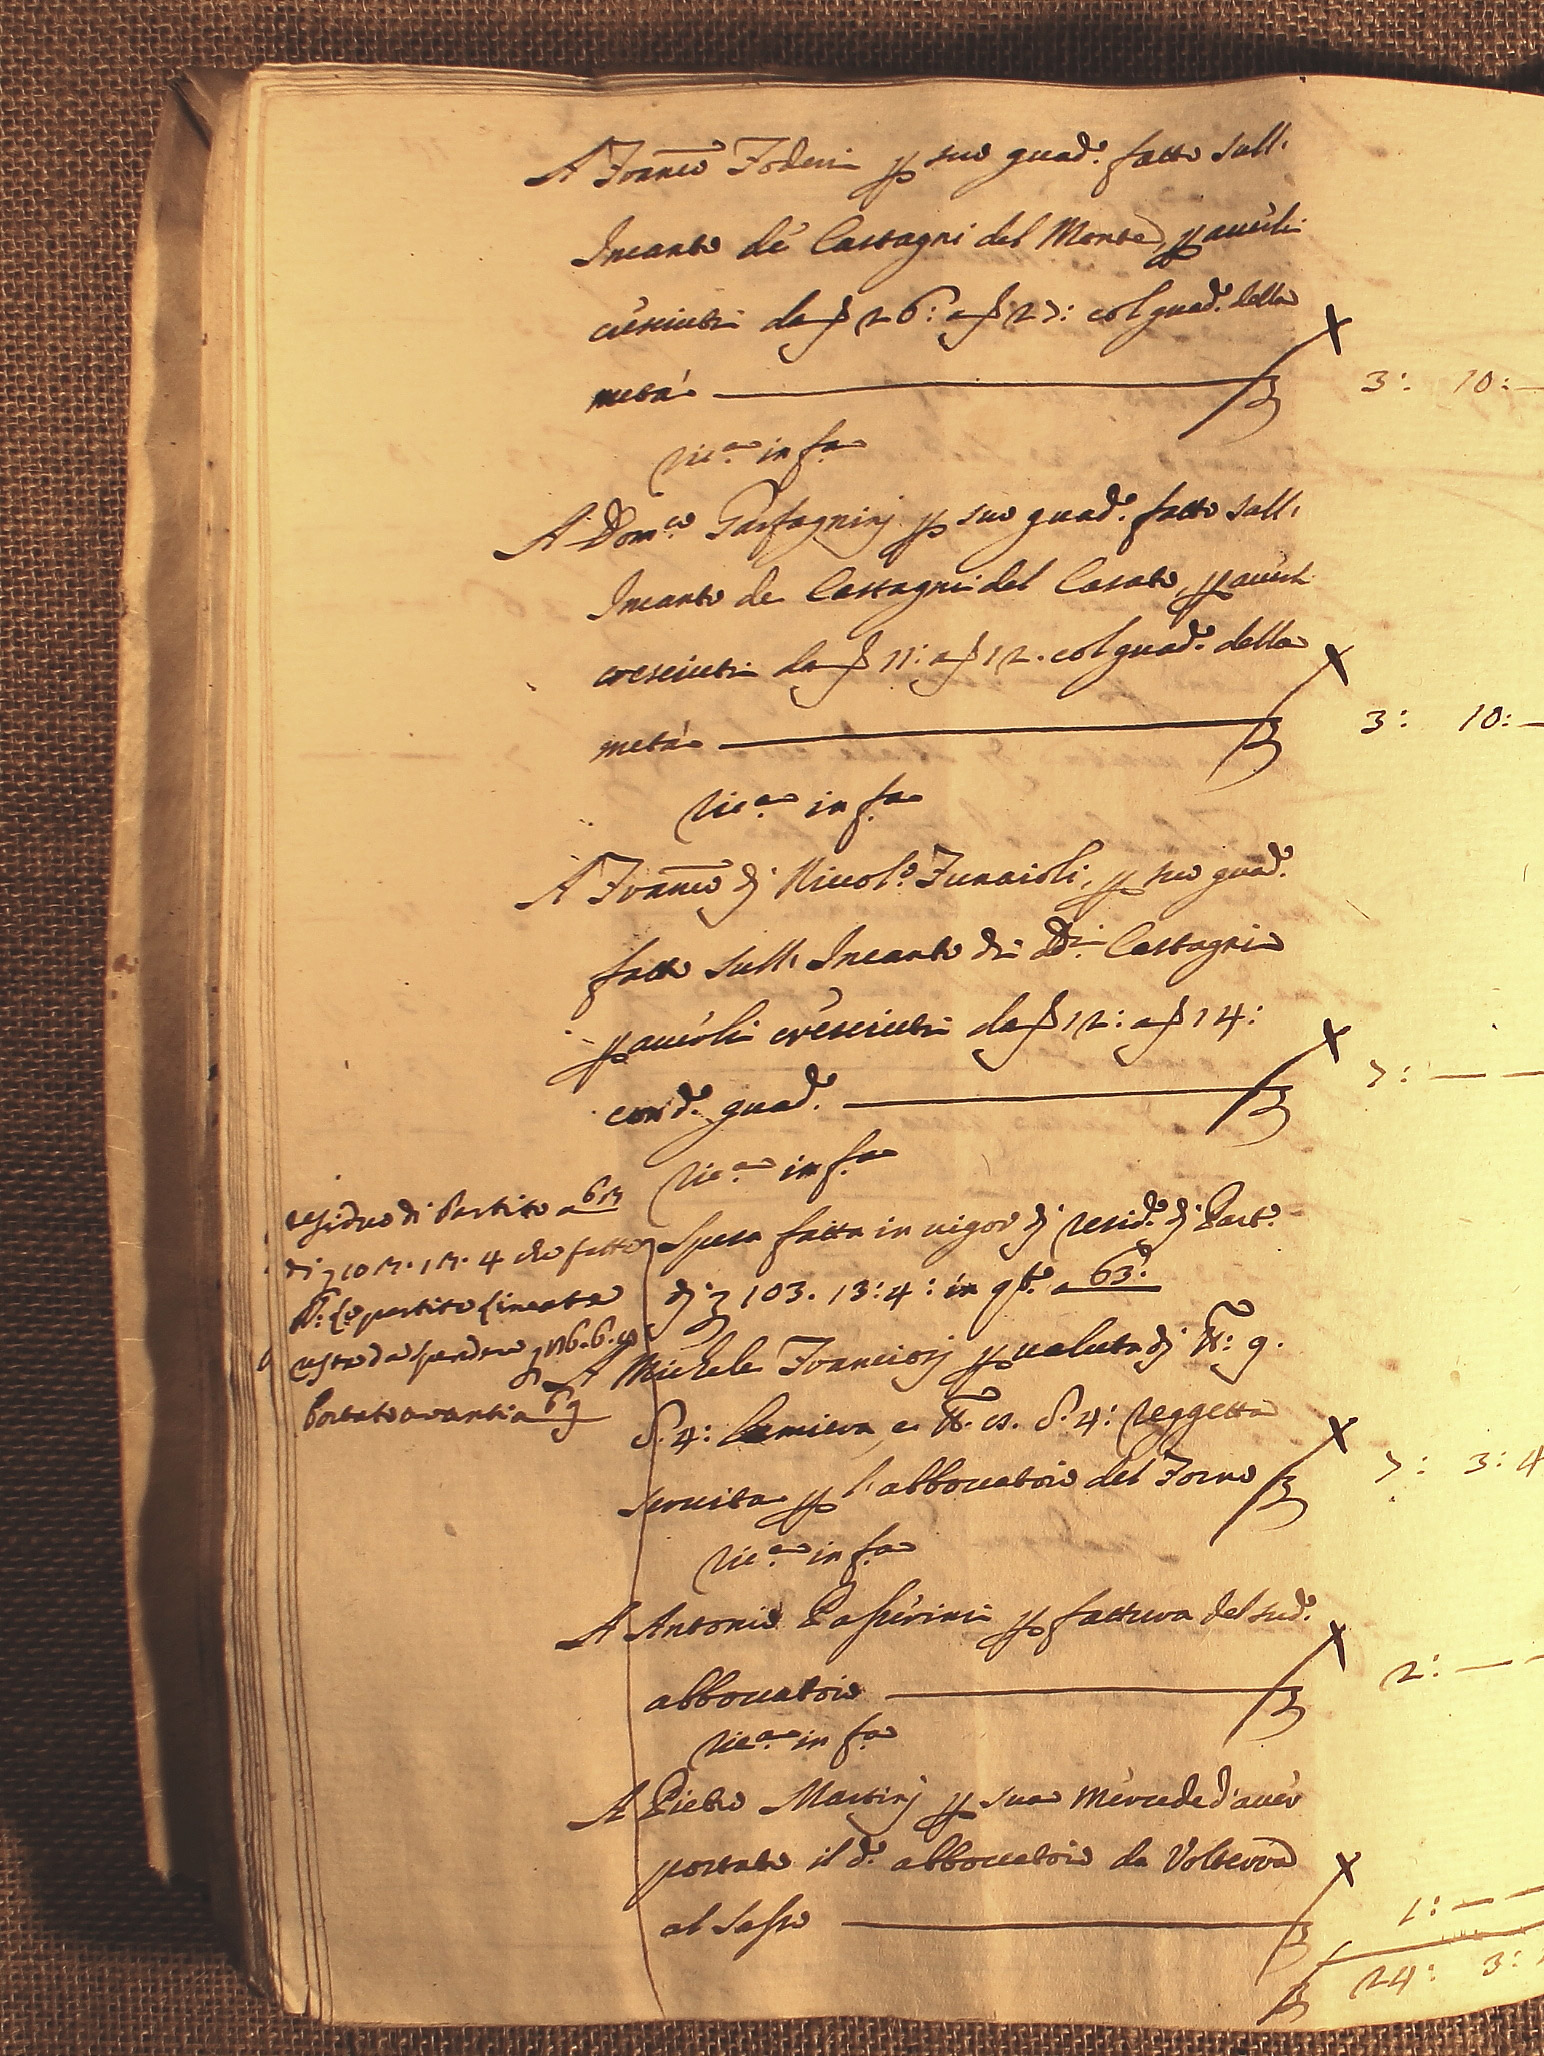 A Fran.co Foderi p suo guad.o fatto sull'
Incanto de Castagni del Monte, p averli
cresciuti da 26: a 27: col guad.o della
metà 3: 10: —
Ric.a in f.a
A Dom.co Garfagnini p suo guad.o fatto sull'
Incanto de Castagni del Casato, p averli
cresciuti da 11: a 12. col guad.o della
metà 3: 10: —
Ric.a in f.a
A Fran.co di Niccol.o Funaioli, p suo guad.o
fatto sull' Incanto di dd.i Castagni
p averli cresciuti da 12: a 14:
con d.o guad.o 7: — —
Ric.a in f.a
residuo di Partito a 63
di 103. 13. 4 che fatto
partito lineato
resta da spendere
Portato avanti a 69
Spesa fatta in vigor di resid.o di Part.o
di 103. 13: 4: in q.to a 63.
A Michele Franciosi p valuta di 9.
4: Lamiera, e 4: reggetta
servita p l'abboccatoio del Forno 7: 3: 4
Ric.a in f.a
A Antonio Passerini p fattura del sud.o
abboccatoio 2: — —
Ric.a in f.a
A Pietro Martini p sua mercede d'aver
portato il d.o abboccatoio da Volterra
al Sasso 1: — —
24: 3: